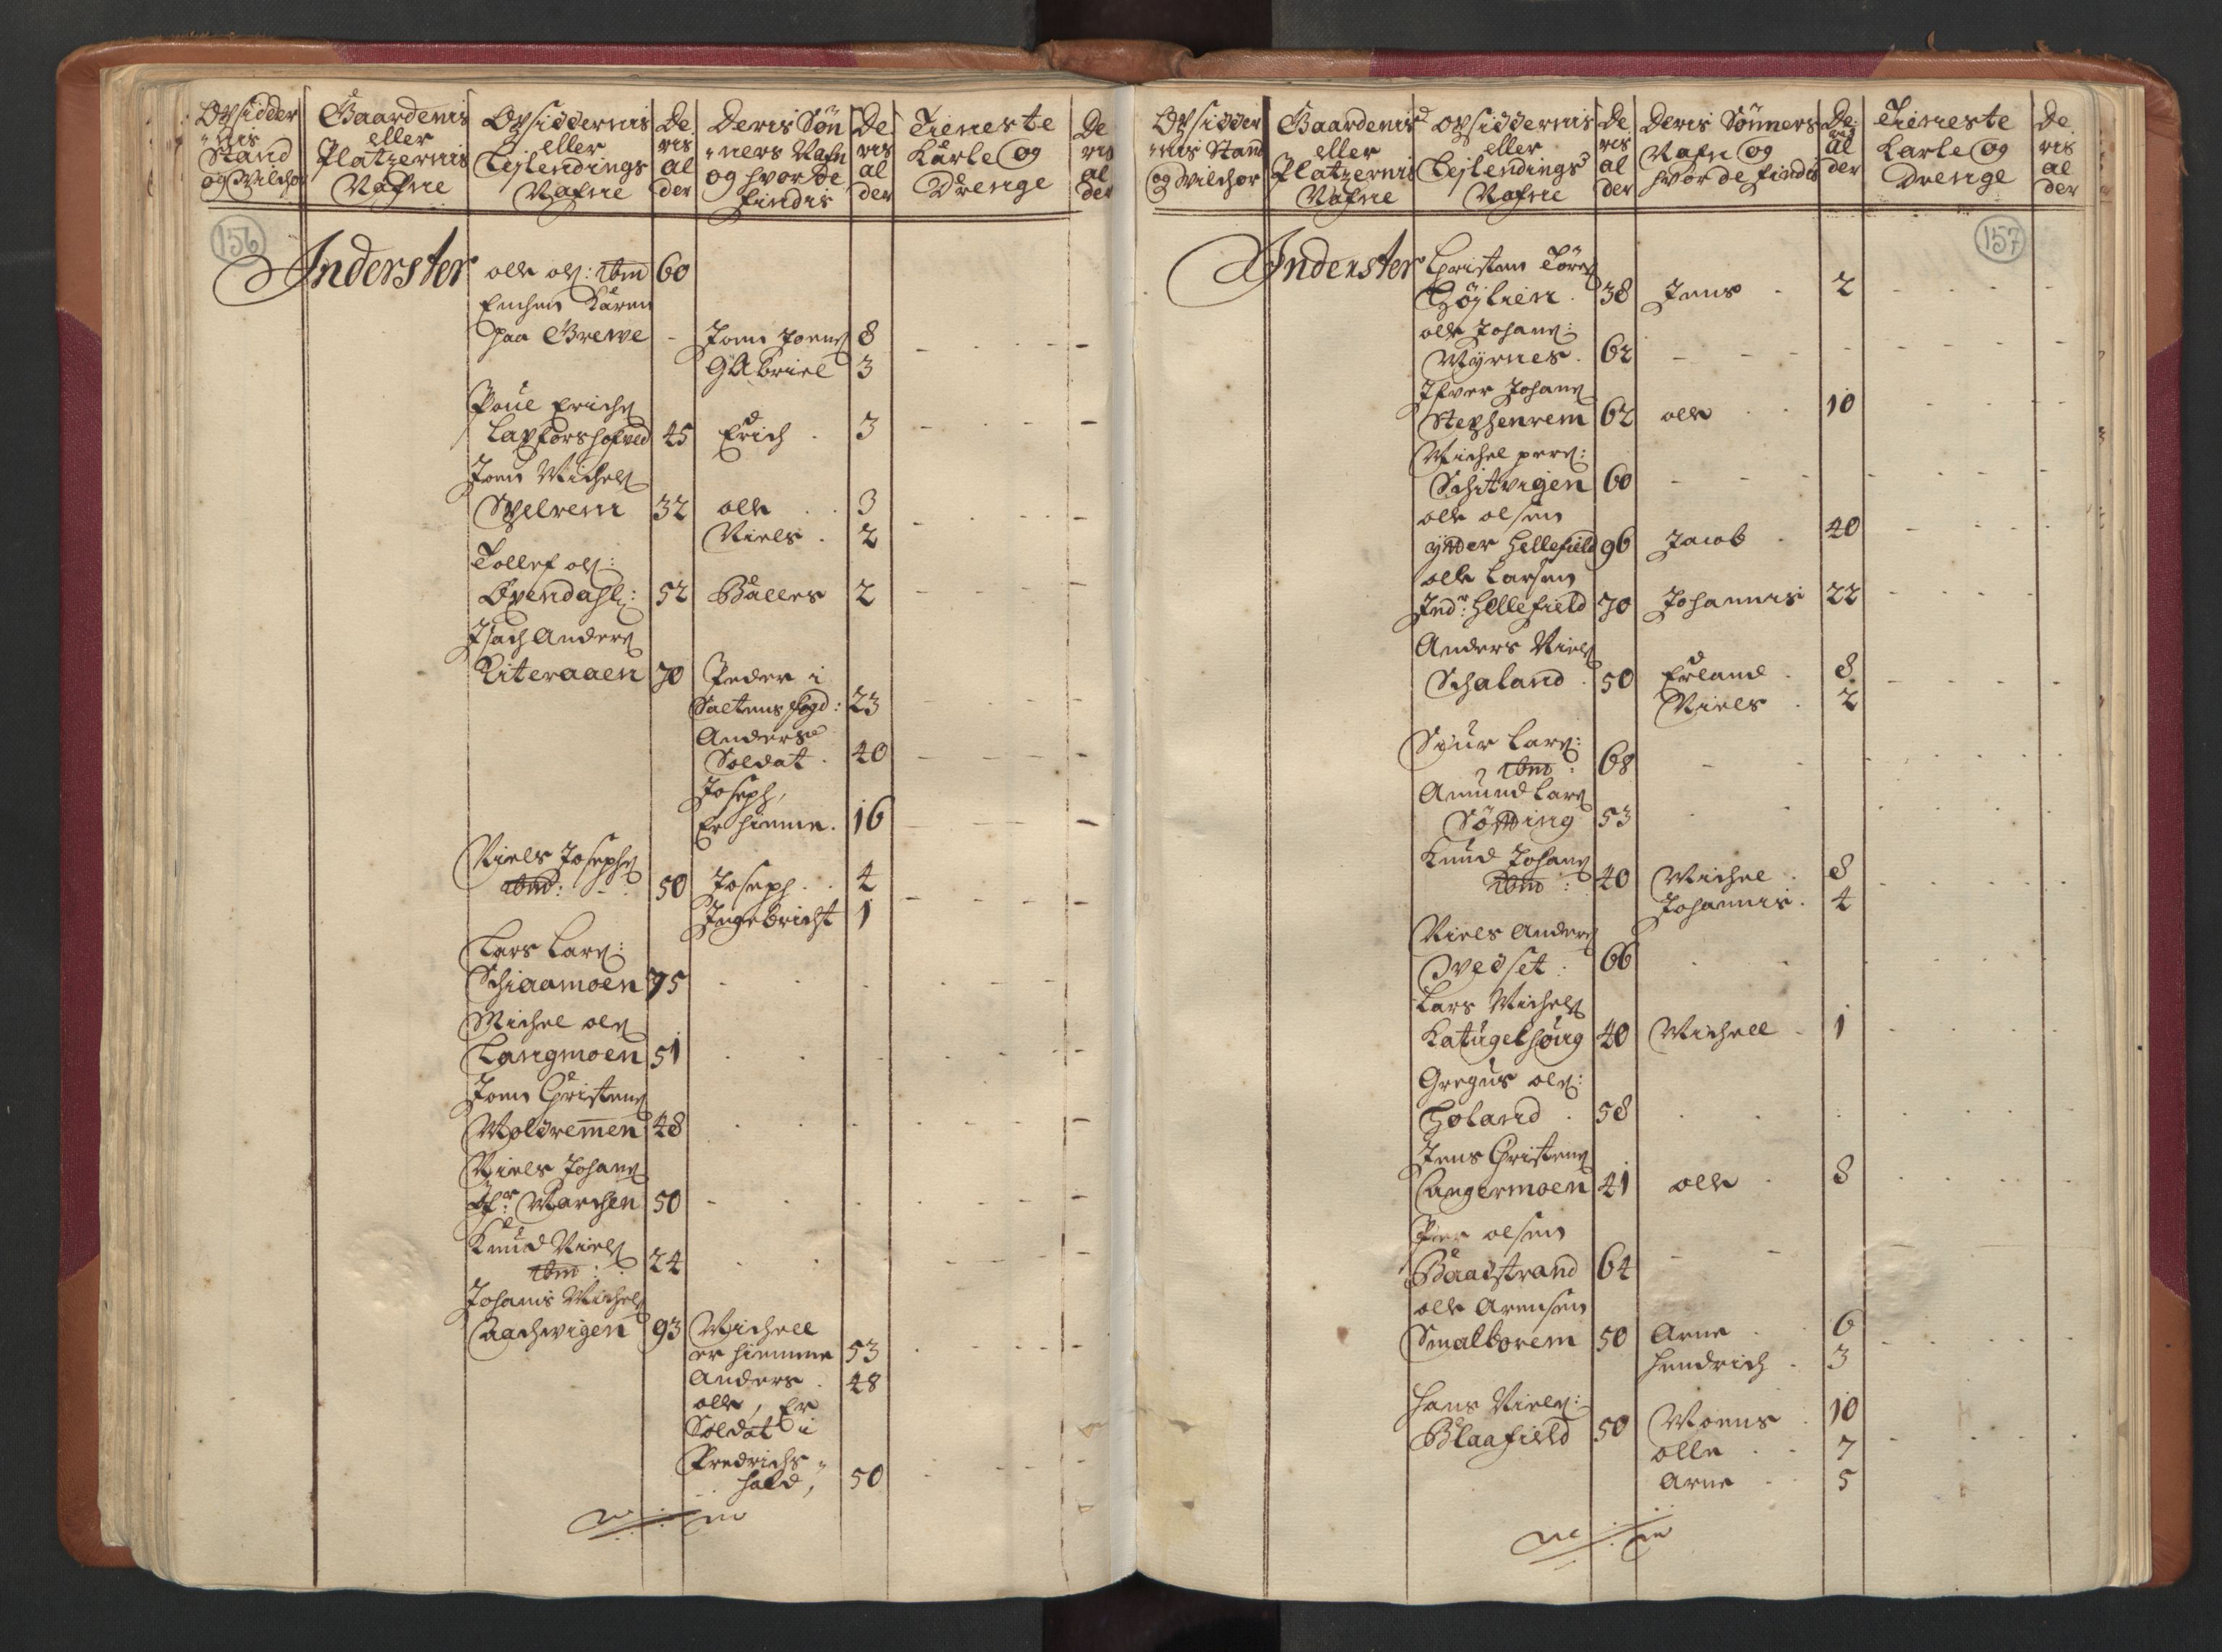 Opsidder
"nis
Stand
og Wilchor
Gaardenis
eller
Platzernis
Nafne
Opsiddernis
eller
Lejlendings
Nafne
De
ris
al
der
Deris Søn
"ners Nafn
og hvor de
findis
De
ris
al
der
Tieneste
Karle og
Drenge
De
ris
al
der
156
Inderster
olle ols: ibm 60
Enchen Karen
paa Grewe - Joen Joens 8
Gabriel 3
Poul Erichs
Lapforshofved 45 Erich . 3
Joen Michels
Spelrem 32 olle . . 3
Niels . 2
Tollef ols:
Øvendahl: 52 Balles 2
Isach Anders
Riteraaen 70 Peder i
Saltens fogd: 23
Anders
Soldat . 40
Joseph,
Er hiemme. 16
Niels Josephs
ibm: - 50 Joseph . . 4
Ingebricht 1
Lars Lars:
Schiaamoen 75
Michel ols
Langmoen 51
Joen Christens
Moldremen 48
Niels Johans
Øfr: Marchen 50
Knud Niels
ibm : 24
Johanis Michels
Aachvigen 93 Michell
er hiemme 53
Anders . 48
olle, Er
Soldat i
Fredrichs"
hald, 50
Opsidder
"nis Stand
og Wilchor
Gaardenis
eller
Platzernis
Nafne
Opsiddernis
eller
Lejlendings
Nafne
De
ris
al
der
Deris Sønners
Nafn og
hvor de findis
De
ris
al
der
Tieneste
Karle og
Drenge
De
ris
al
der
157
Inderster
Christen Törs
Højlien . 38 Jens - 2
olle Johans:
Myrnes . 62
Ifver Johans
Stephenrem 62 olle . . 10
Michel pers:
Schitvigen 60
olle olsen
ytter Hellefield 96 Jacob . 40
olle Larsen
Indr: Hellefield 70 Johannis 22
Anders Niels
Schaland . 50 Erland . 8
Niels . 2
Siur Lars:
ibm : 68
Amund Lars
Sötting 53
Knud Johans
ibm : 40 Michel . 8
Johannis . 4
Niels Anders
Qvedset : 66
Lars Michels
Katugelhoug 40 Michell - 1
Gregus ols:
Holand . 58
Jens Christens
Angermoen 41 olle . 8
Per olsen
Baadstrand 64
olle Arensen
Smalborem 50 Arne . 6
Hendrich . 3
Hans Niels:
Blaafield 50 Moens . 10
olle . . 7
Arne . . 5